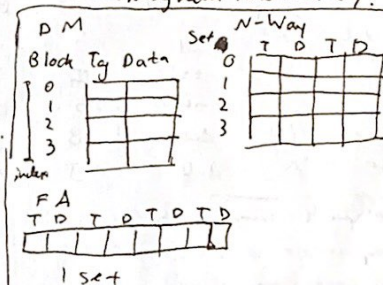 D M
Block Tg Data
0
1
2
3
index
N-Way
Set
T D T D
0
1
2
3
F A
T D T D T D T D
1 set